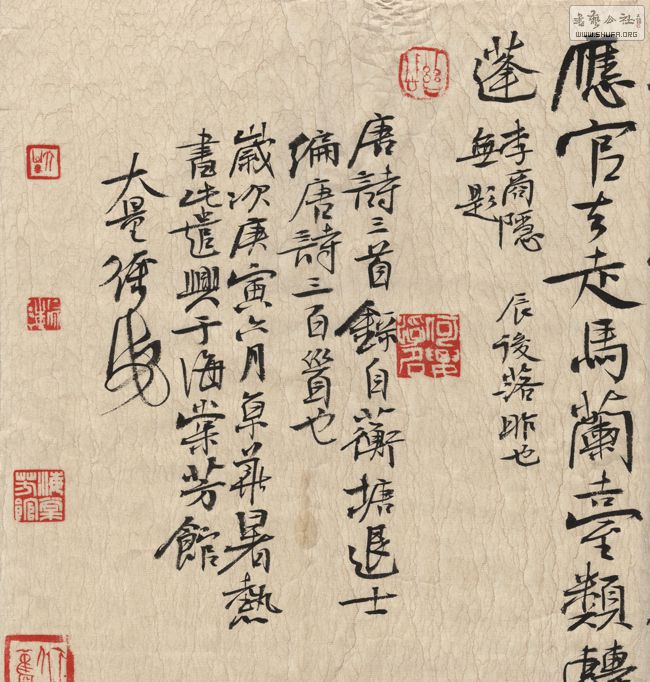 應官去走馬蘭臺類轉
蓬
李商隱
無題
辰後落昨也
唐詩三首錄自蘅塘退士
編唐詩三百首也
歲次庚寅六月暑熱
書此遣興于海棠芳館
海棠芳館
書藝公社
WWW.SHUFA.ORG